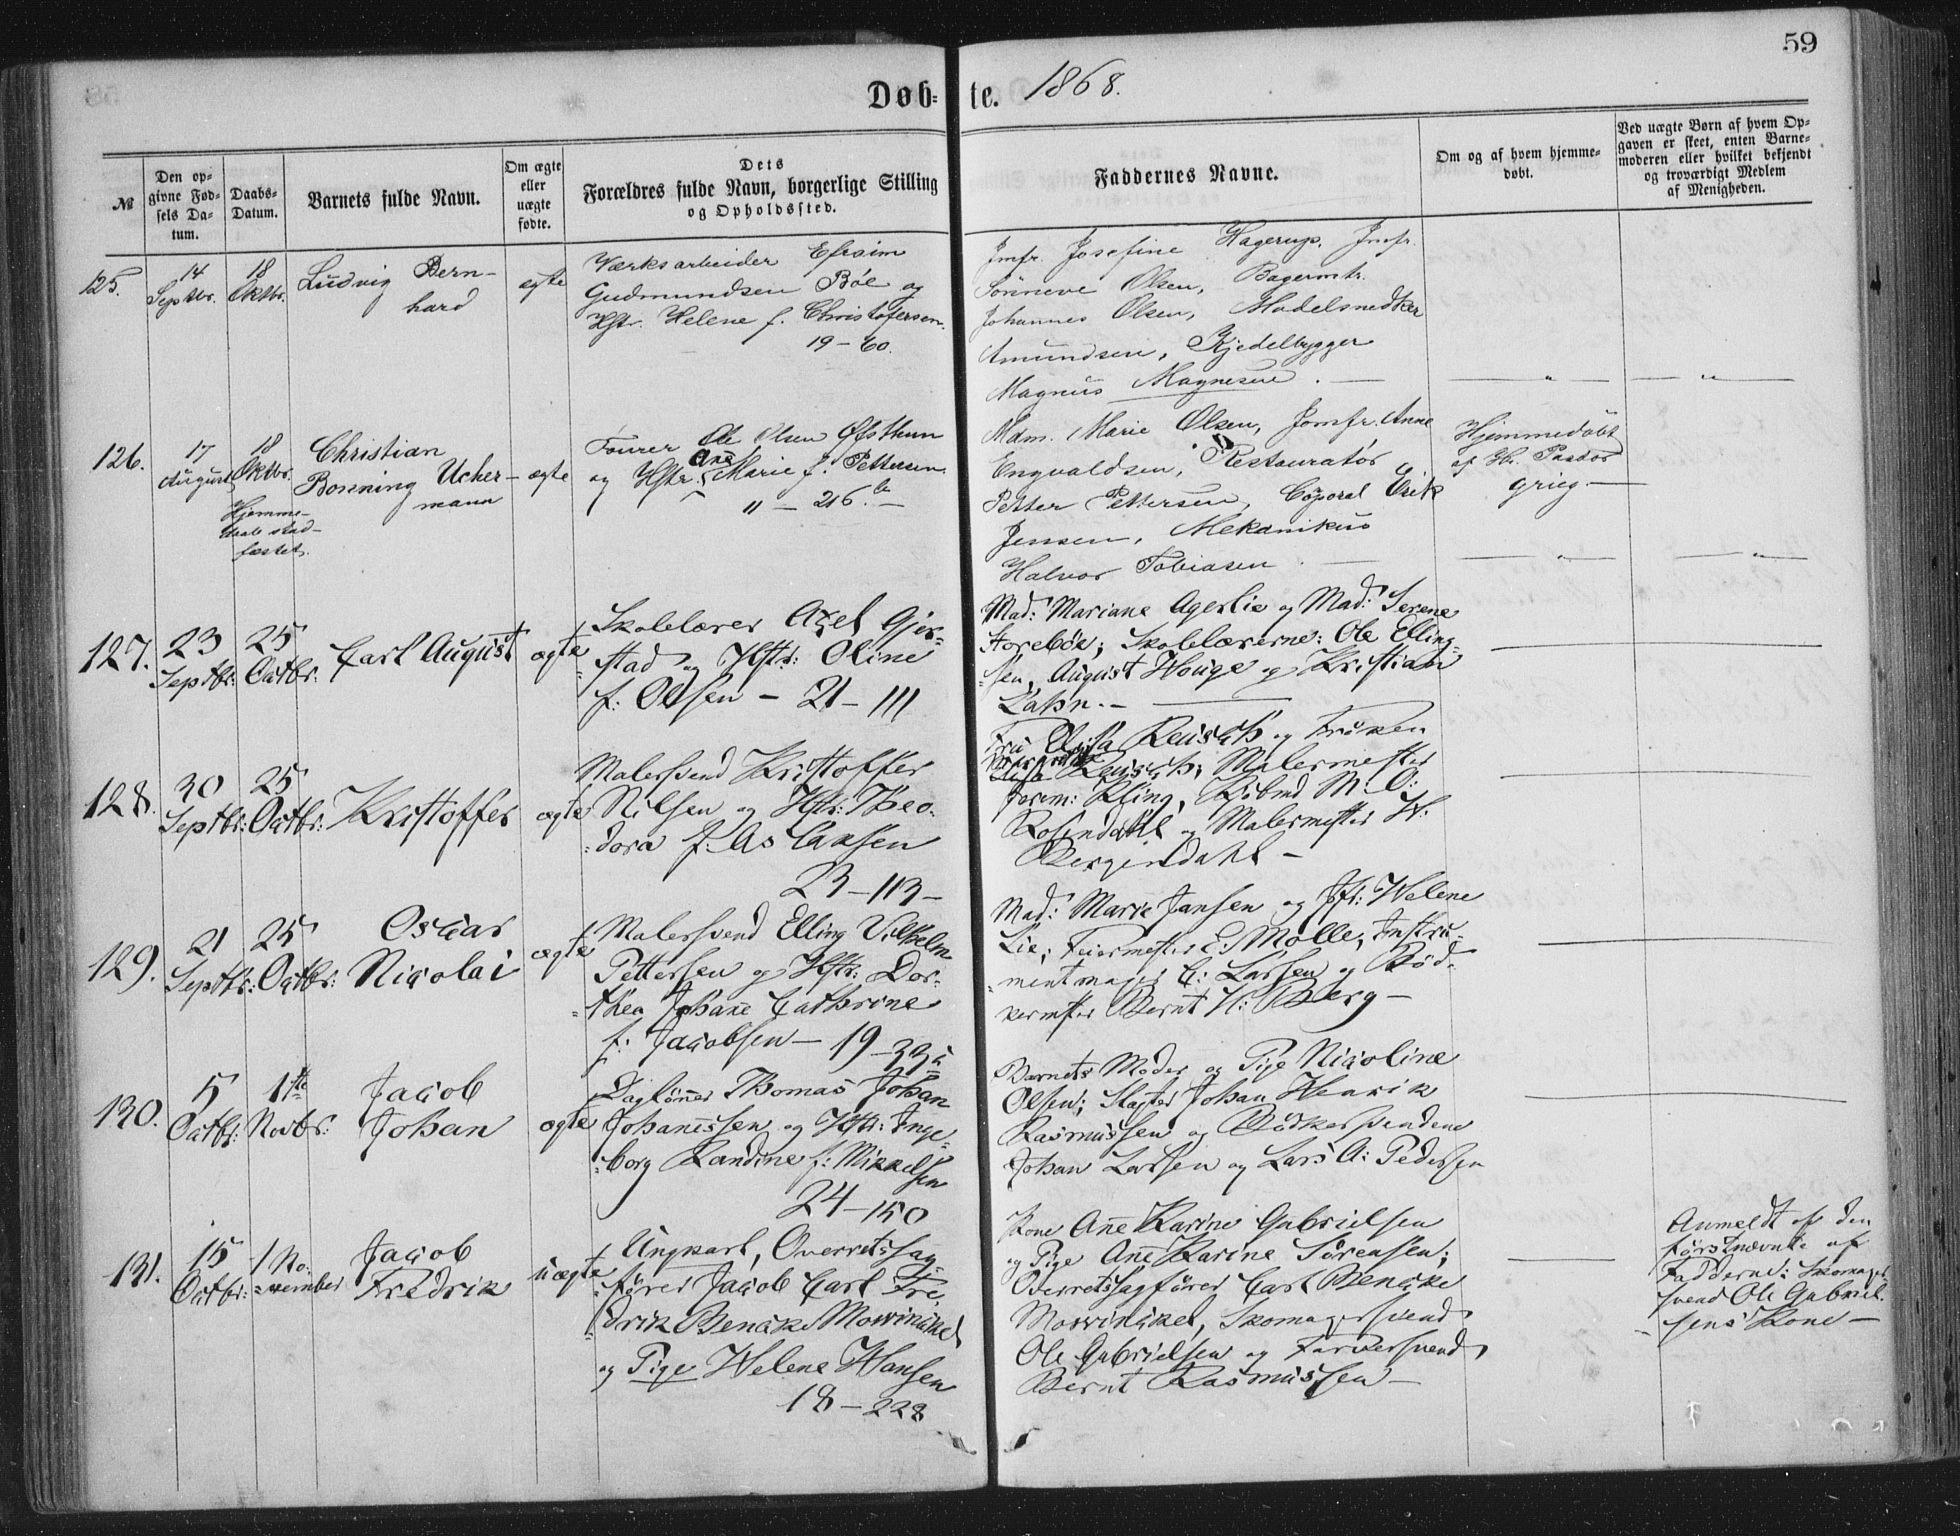 59
Døb- te. 1868.
№
Den op-
givne Fød-
sels Da-
tum.
Daabs-
Datum.
Barnets fulde Navn.
Om ægte
eller
uægte
fødte.
Dets
Forældres fulde Navn, borgerlige Stilling
og Opholdssted.
Faddernes Navne.
Om og af hvem hjemme-
døbt.
Ved uægte Børn af hvem Op-
gaven er skeet, enten Barne-
moderen eller hvilket bekjendt
og troværdigt Medlem
af Menigheden.
125.
14
Septbr.
18
Oktbr.
Ludvig Bern-
hard
ægte
Værksarbeider Efraim
Gudmundsen Böe og
Hstr. Helene f. Christofersen.
19-60.
Jmfr. Josefine Hagerup, Jmfr.
Sönneve Olsen, Bagermtr.
Johannes Olsen, Modelsnedker
Amundsen, Kjedelbygger
Magnus Magnesen.
126.
17
August
18
Oktbr.
Hjemme-
daab stad-
fæstet.
Christian
Bonning Ucher-
mann
ægte
Fourer Ole Olsen Øfsthun
og Hstr. Ane Marie f. Pettersen
" - 216.b -
Mdm. Marie Olsen, Jomfr. Anne
Engvaldsen, Restauratör
Petter Pettersen, Coporal Erik
Jensen, Mekanikus
Halvor Tobiasen
Hjemmedöbt
af Hr. Pastor
Grieg.
127.
23
Septbr:
25
Octbr:
Carl August
ægte
Skolelærer Axel Gjer-
stad og Hstr: Oline
f: Olsen - 21-111
Mad: Mariane Agerlie og Mad: Serene
Storeböe; Skolelærerne: Ole Elling-
sen, August Houge og Kristian
Zahn.-
128.
30
Septbr:
25
Octbr:
Kristoffer
ægte
Malersvend Kristoffer
Nilsen og Hstr: Theo-
dora f: Aslaksen
23-113-
Fru Elisa Reusch og Fröken
Reusch; Malermester
Kling, Kjöbmd M. O:
Rosendahl og Malermester H:
Bergendahl -
129.
21
Septbr:
25
Octbr:
Oscar
Nicolai
ægte
Malersvend Elling Vilhelm
Pettersen og Hstr: Dor-
thea Johane Cathrine
f: Jacobsen - 19-
Mad: Marie Jansen og Jfr: Helene
Lie; Feiermester E: Mölle, Instru-
mentmager C: Larsen og Bød-
kermester Bernt H: Berg -
130.
5
Octbr:
1ste
Novbr:
Jacob
Johan
ægte
Daglönner Thomas Johan
Johanessen og Hstr: Inge-
borg Randine f: Mikkelsen
24-150
Barnets Moder og Pige Nicoline
Olsen; Slagter Johan Henrik
Rasmussen og Bödkersvendene
Johan Larsen og Lars A: Pedersen
131.
15
Octbr:
1 No-
vember
Jacob
Fredrik
uægte
Ungkarl, Overretssag-
förer Jacob Carl Fre-
drik Bencke Mowinckel
og Pige Helene Hansen
18-228
Kone Ane Karine Gabrielsen
og Pige Ane Karine Sörensen;
Overretssagförer Carl Bencke
Mowinckel, Skomagersvend
Ole Gabrielsen og Farversvend
Bernt Rasmussen -
Anmeldt af den
förstnævnte af
Fadderne: Skomager-
svend Ole Gabriel-
sens Kone -